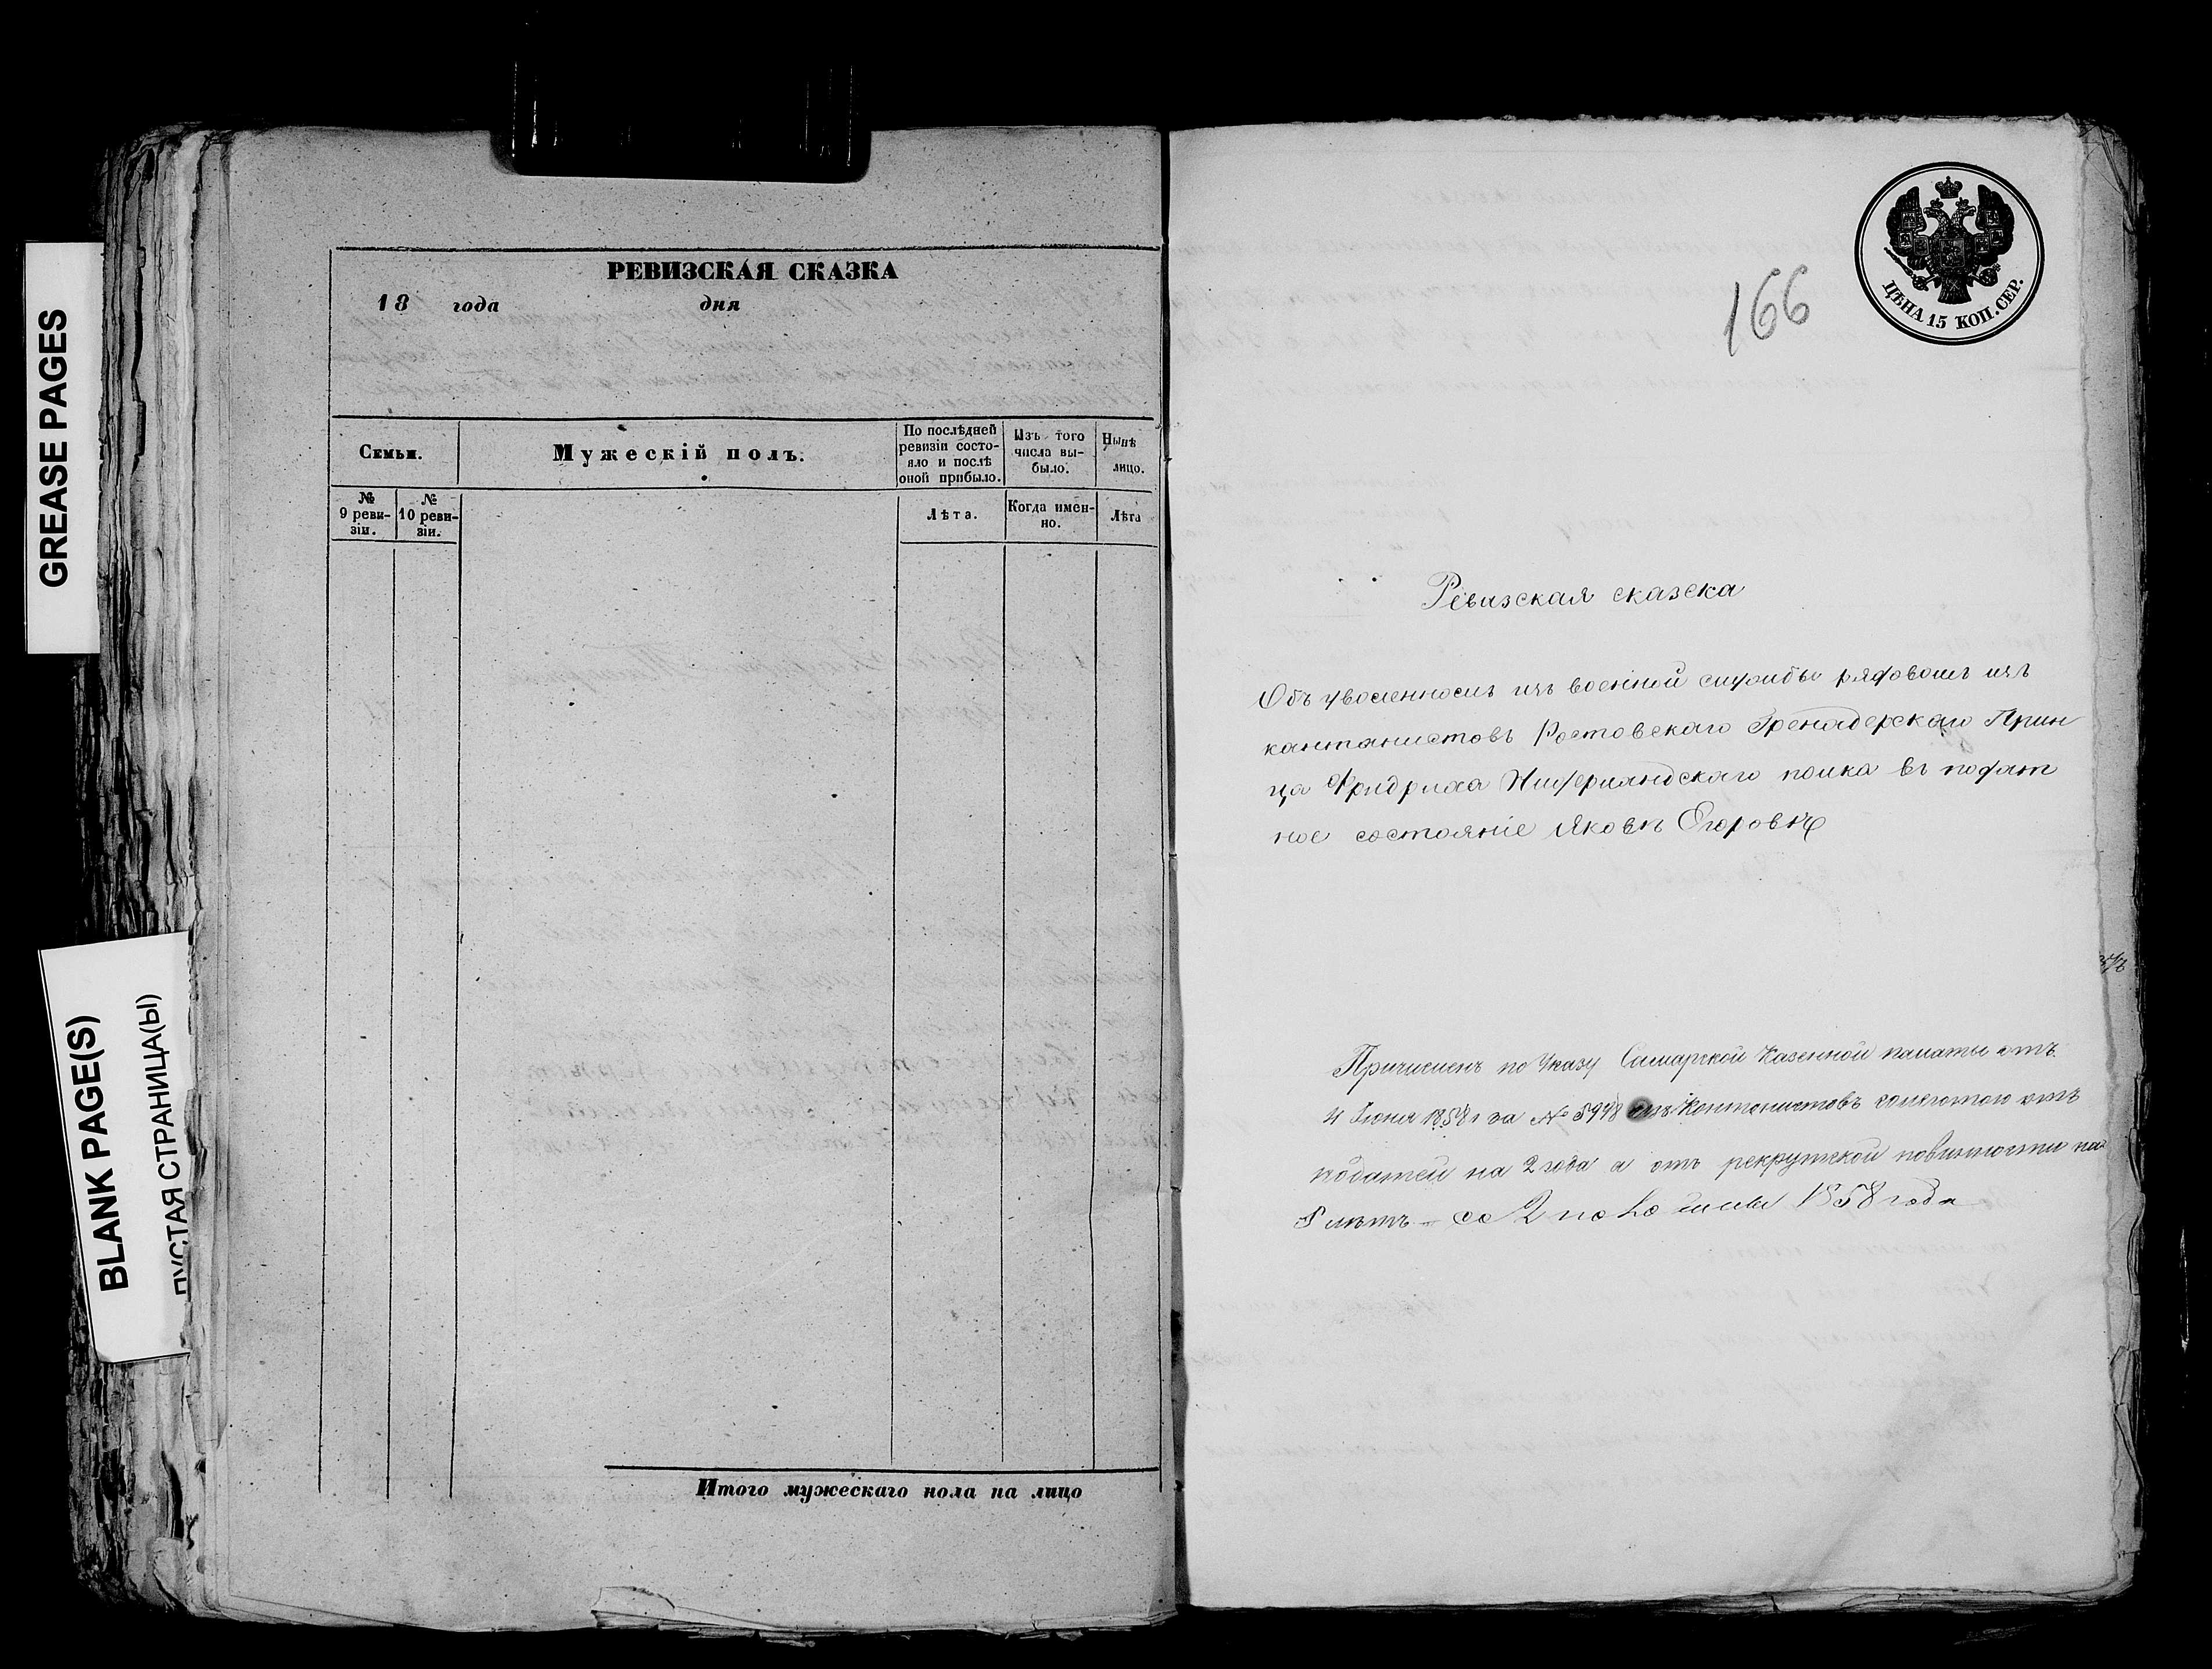 GREASE PAGES
BLANK PAGE(S)
ПУСТАЯ СТРАНИЦА(Ы)
РЕВИЗСКАЯ СКАЗКА
18 года дня
Семьи.
Мужескій полъ.
По послѣдней ревизіи состо-
яло и послѣ оной прибыло.
Изъ того числа вы-
было.
Нынѣ лицо.
№ 9 реви-
зіи.
№ 10 реви-
зіи.
Лѣта.
Когда имен-
но.
Лѣта
Итого мужескаго пола на лицо
166
ЦѢНА 15 КОП. СЕР.
Ревизская сказка
Объ уволенномъ изъ военной службы рядовомъ изъ
кантонистовъ Ростовскаго Гренадерскаго Прин
ца Фридриха Нидерландскаго полка въ подат
ное состояніе Яковѣ Егоровѣ
Причисленъ по Указу Самарской Казенной палаты отъ
4 Іюня 1858 г за № 5998 изъ Кантонистовъ солготою отъ
податей на 2 года а отъ рекрутской повинности на
8 лѣтъ - со 2 по ловины 1858 года